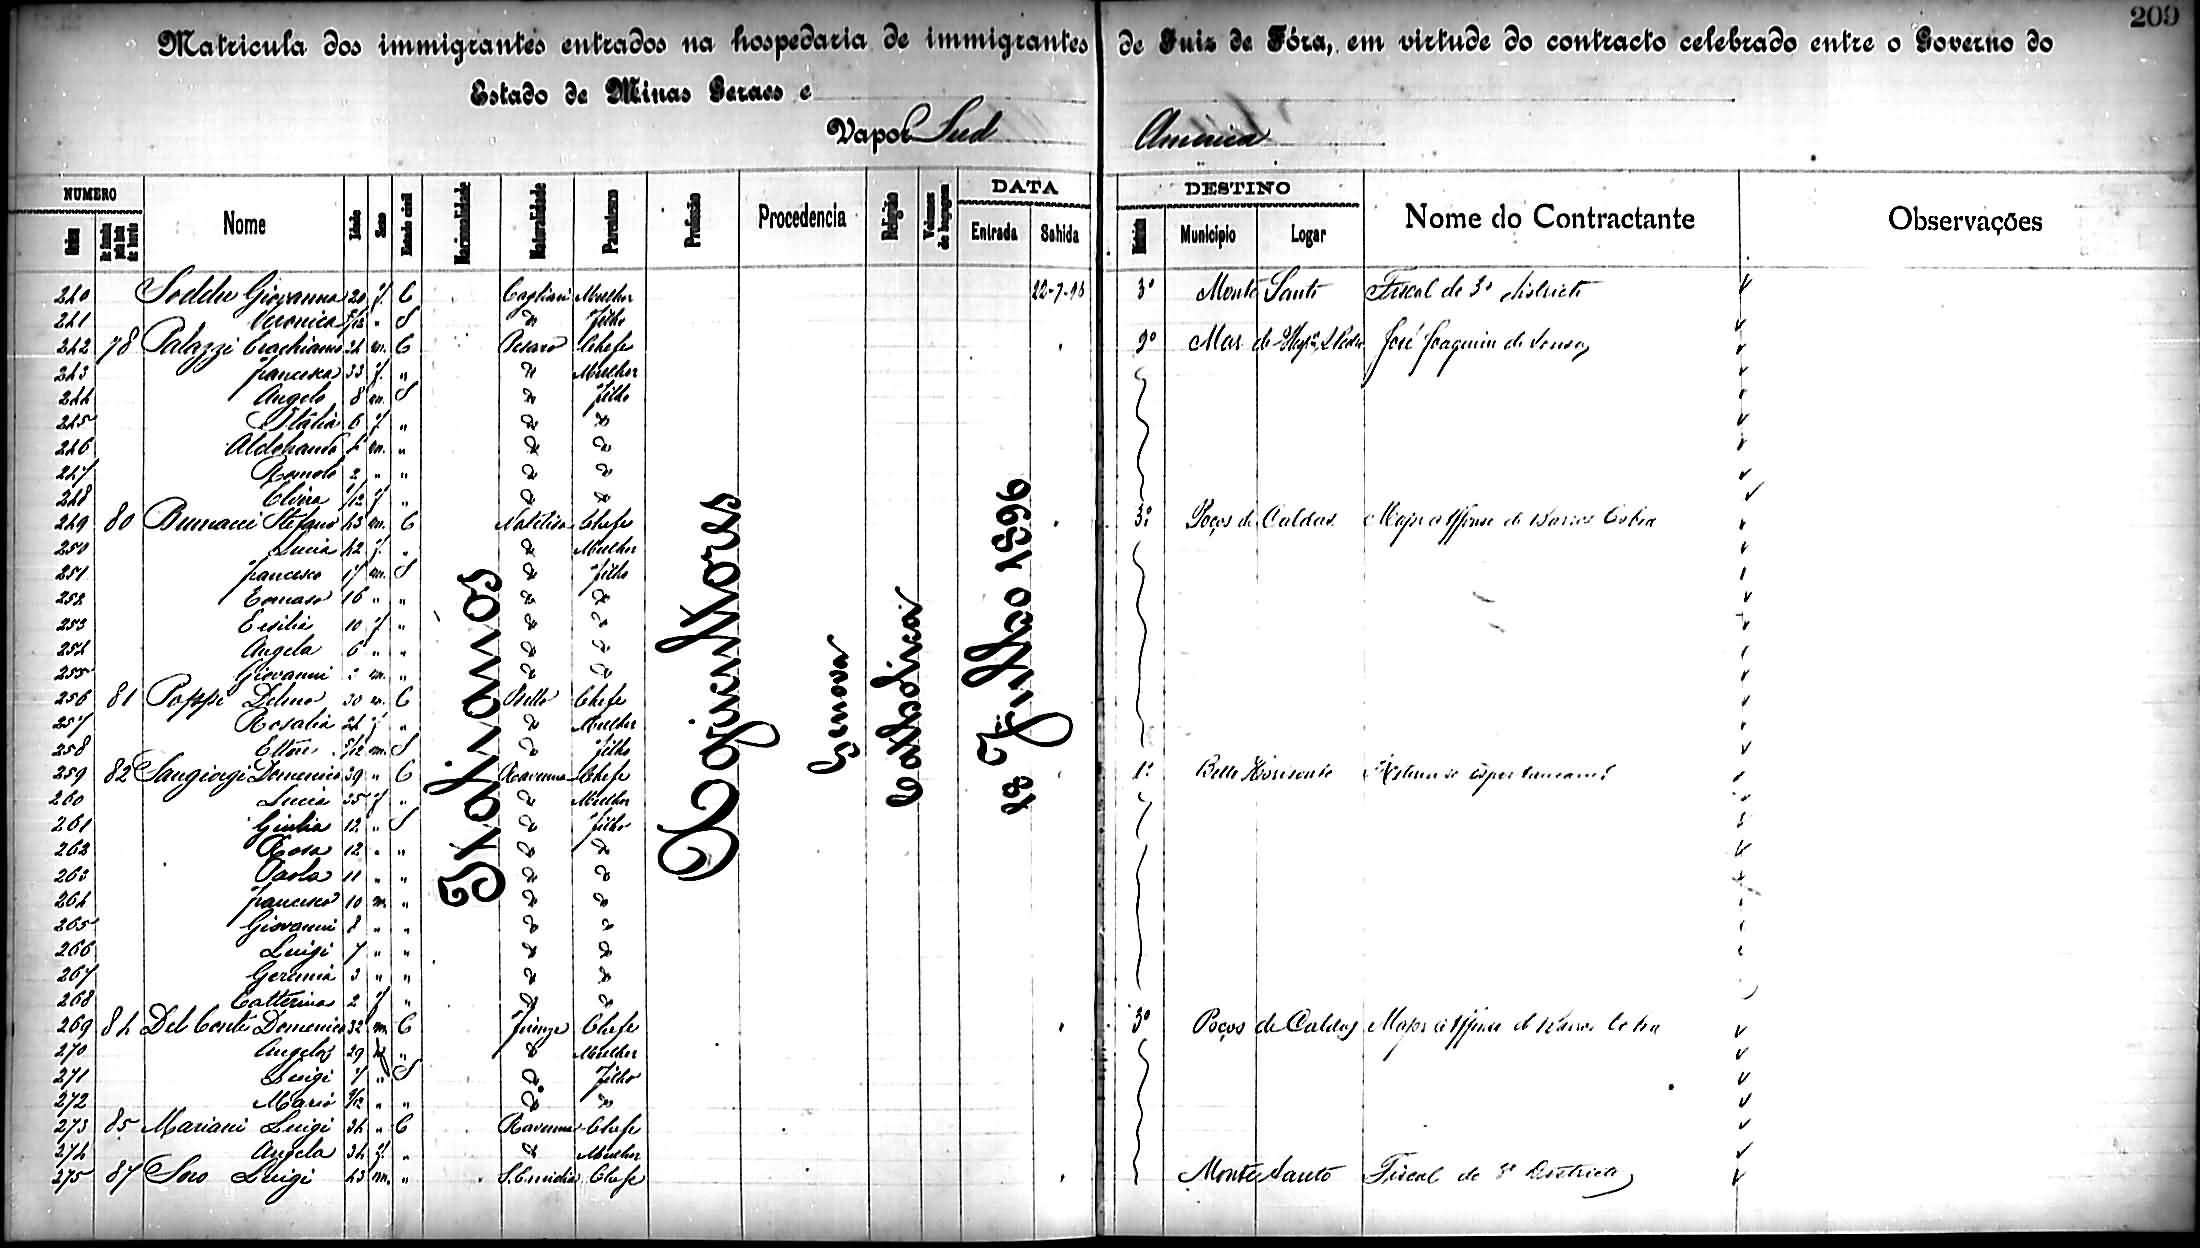 209
Matricula dos immigrantes entrados na hospedaria de immigrantes de Juiz de Fóra, em virtude do contracto celebrado entre o Governo do
Estado de Minas Geraes e
Vapor Sud America
NUMERO Nome Idade Sexo Estado civil Nacionalidade Naturalidade Parentesco Profissão Procedencia Religião Volumes de bagagem DATA DESTINO Nome do Contractante Observações
Ordem de familia pela lista de bordo Entrada Sahida Districto Municipio Logar
Italianos Agricultores Genova Catholica 18 Julho 1896
240 Soddu Giovanna 20 f. C Cagliari Mulher 22-7-96 3º Monte Santo Fiscal do 3º districto
241 Veronica /12 " S " Filho
242 78 Palazzi 34 m. C Pesaro Chefe 9º Mar de José Joaquim de Souza
243 Francesca 33 f. " " Mulher
244 Angelo 8 m. S " Filho
245 Italia 6 f. " " "
246 4 m. " " "
247 Romolo 2 " " " "
248 Elvira /12 f. " " "
249 80 Stefano 43 m. C Chefe 3º Poços de Caldas Major
250 Lucia 42 f. " " Mulher
251 Francesco 17 m. S " Filho
252 Tomaso 16 " " " "
253 Ersilia 10 f " " "
254 Angela 6 " " " "
255 Giovanni m. " " "
256 81 Poppi Delmo 30 m. C Chefe
257 Rosalia 24 f " " Mulher
258 Ettore /12 m. S " Filho
259 82 Sangiorgi Domenico 39 " C Ravenna Chefe 1º Bello Horisonte
260 Lucia 35 f " " Mulher
261 Giulia 12 " S " Filho
262 Rosa 12 " " " "
263 Paola 11 " " " "
264 Francesco 10 m. " " "
265 Giovanni 8 " " " "
266 Luigi 7 " " " "
267 Geremia 3 " " " "
268 Catterina 2 f " " "
269 84 Del Conte Domenico 32 m. C Firenze Chefe 3º Poços de Caldas Major
270 Angela 29 " " Mulher
271 Luigi 7 " S " Filho
272 Mario /12 " " " "
273 85 Mariani Luigi 34 " C Ravenna Chefe
274 Angela 34 f. " " Mulher
275 87 Luigi 43 m. " Chefe Monte Santo Fiscal do 3º Districto